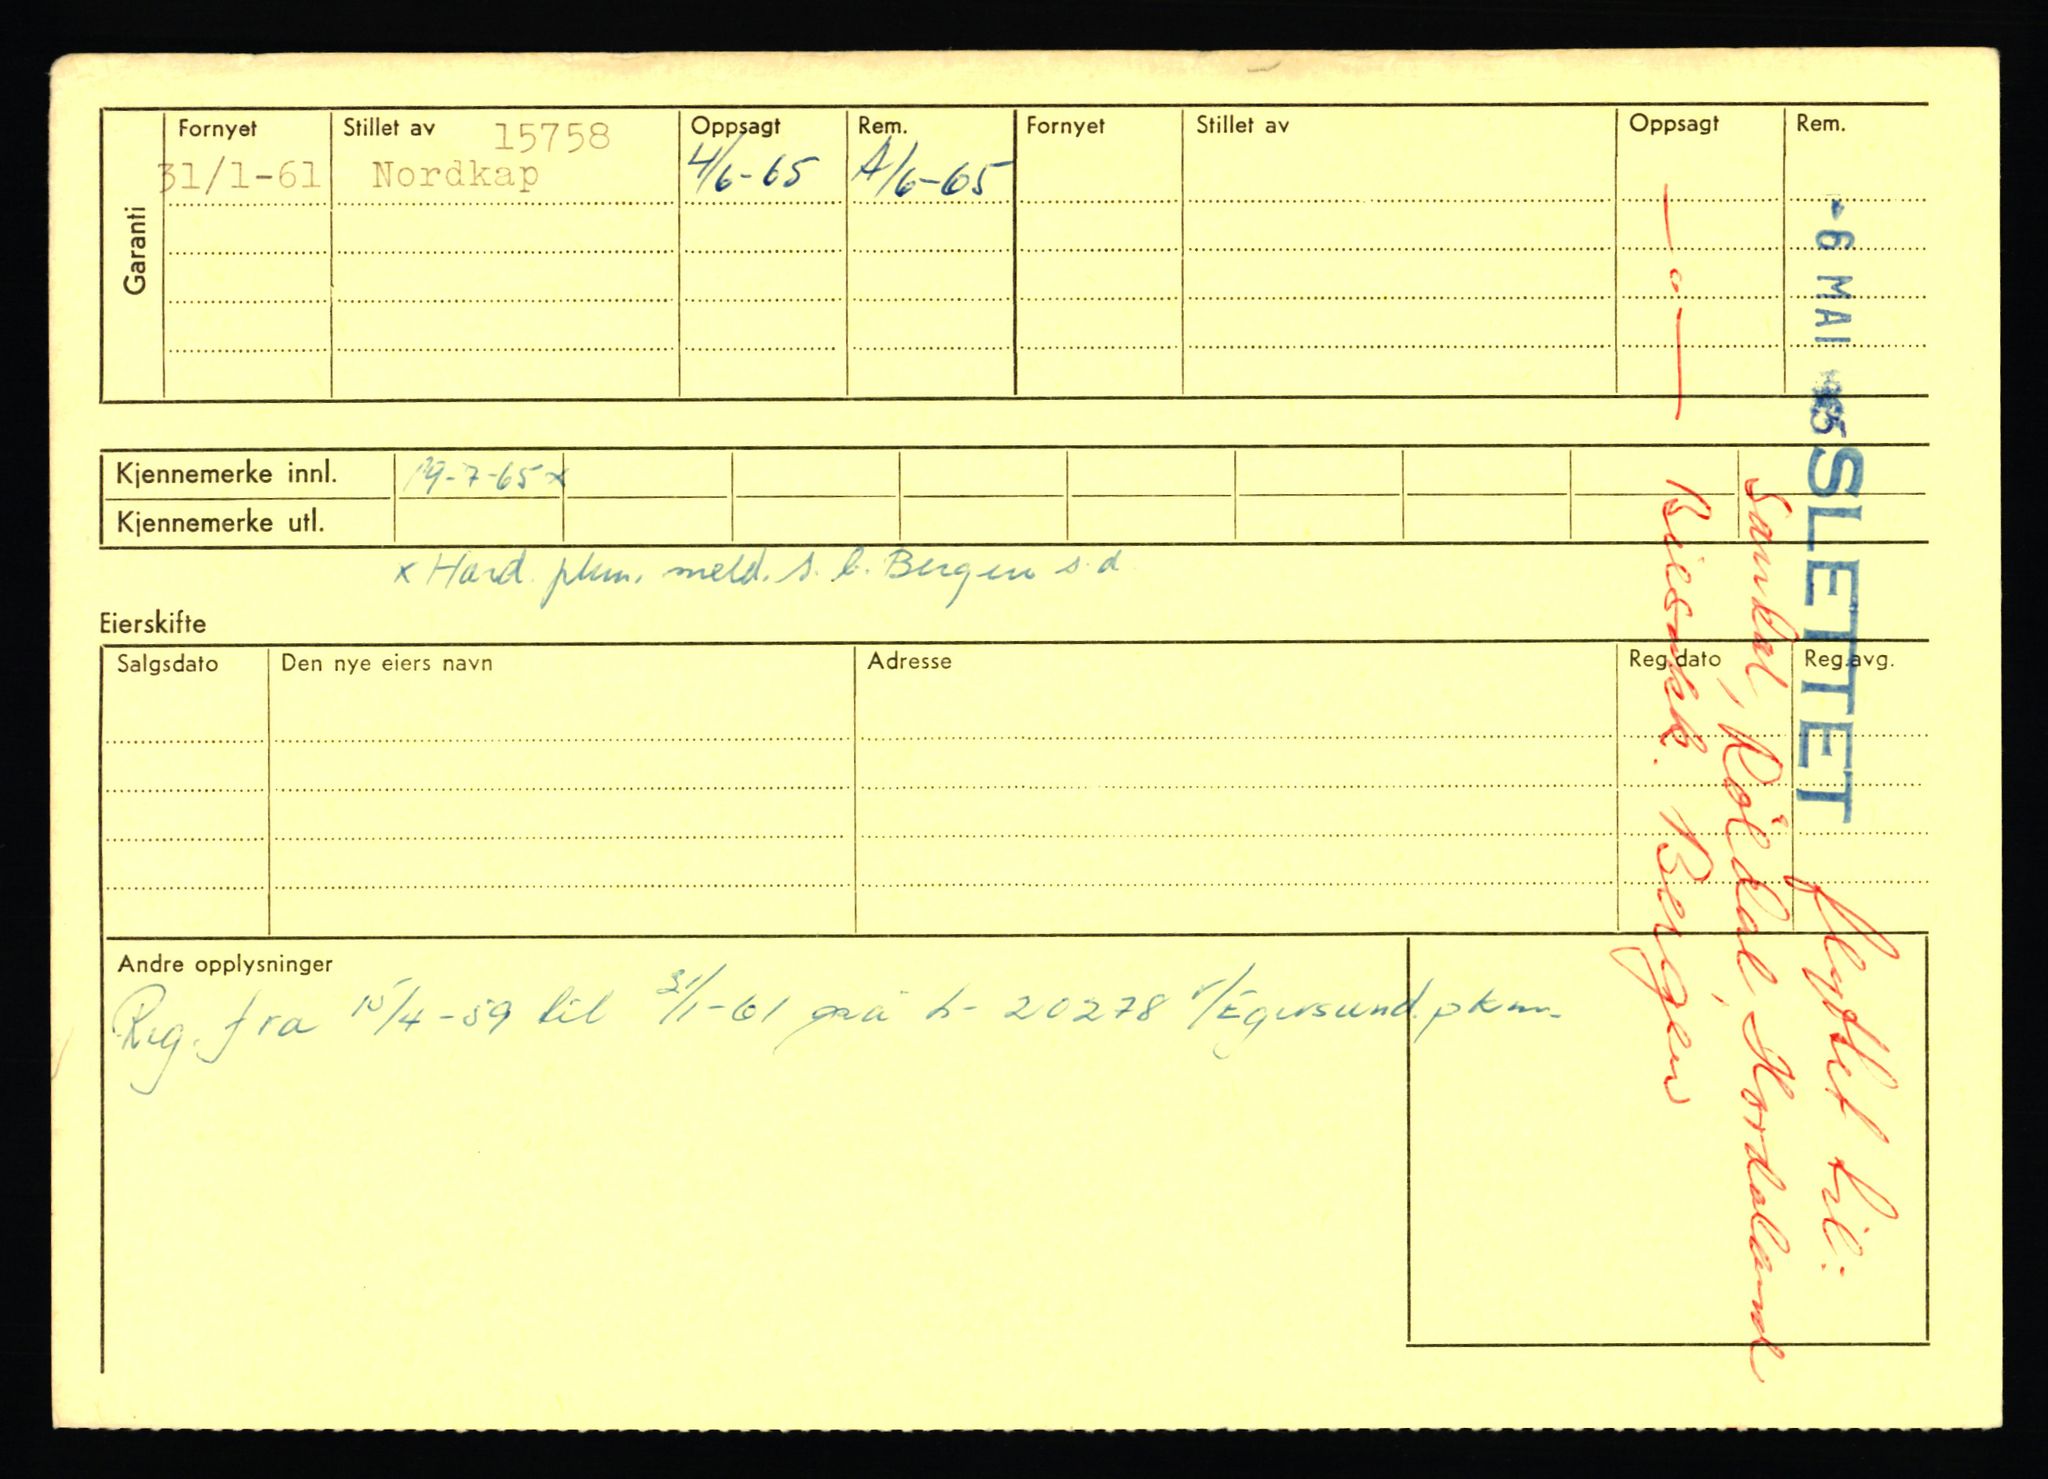 Garanti
Fornyet Stillet av 15758 Oppsagt Rem. Fornyet Stillet av Oppsagt Rem.
31/1-61 Nordkap 4/6-65 A/6-65
Kjennemerke innl. 19-7-65 x
Kjennemerke utl.
x Hord. pkm. meld. s. b. Bergen s.d.
Eierskifte
Salgsdato Den nye eiers navn Adresse Reg.dato Reg.avg.
Andre opplysninger
Reg. fra 15/4-59 til 31/1-61 på L-20278 v/Egersund.pkm.
- 6 MAI 1965 SLETTET
flyttet til:
Samdal, Röldal, Hordaland
Bilsakk. Bergen